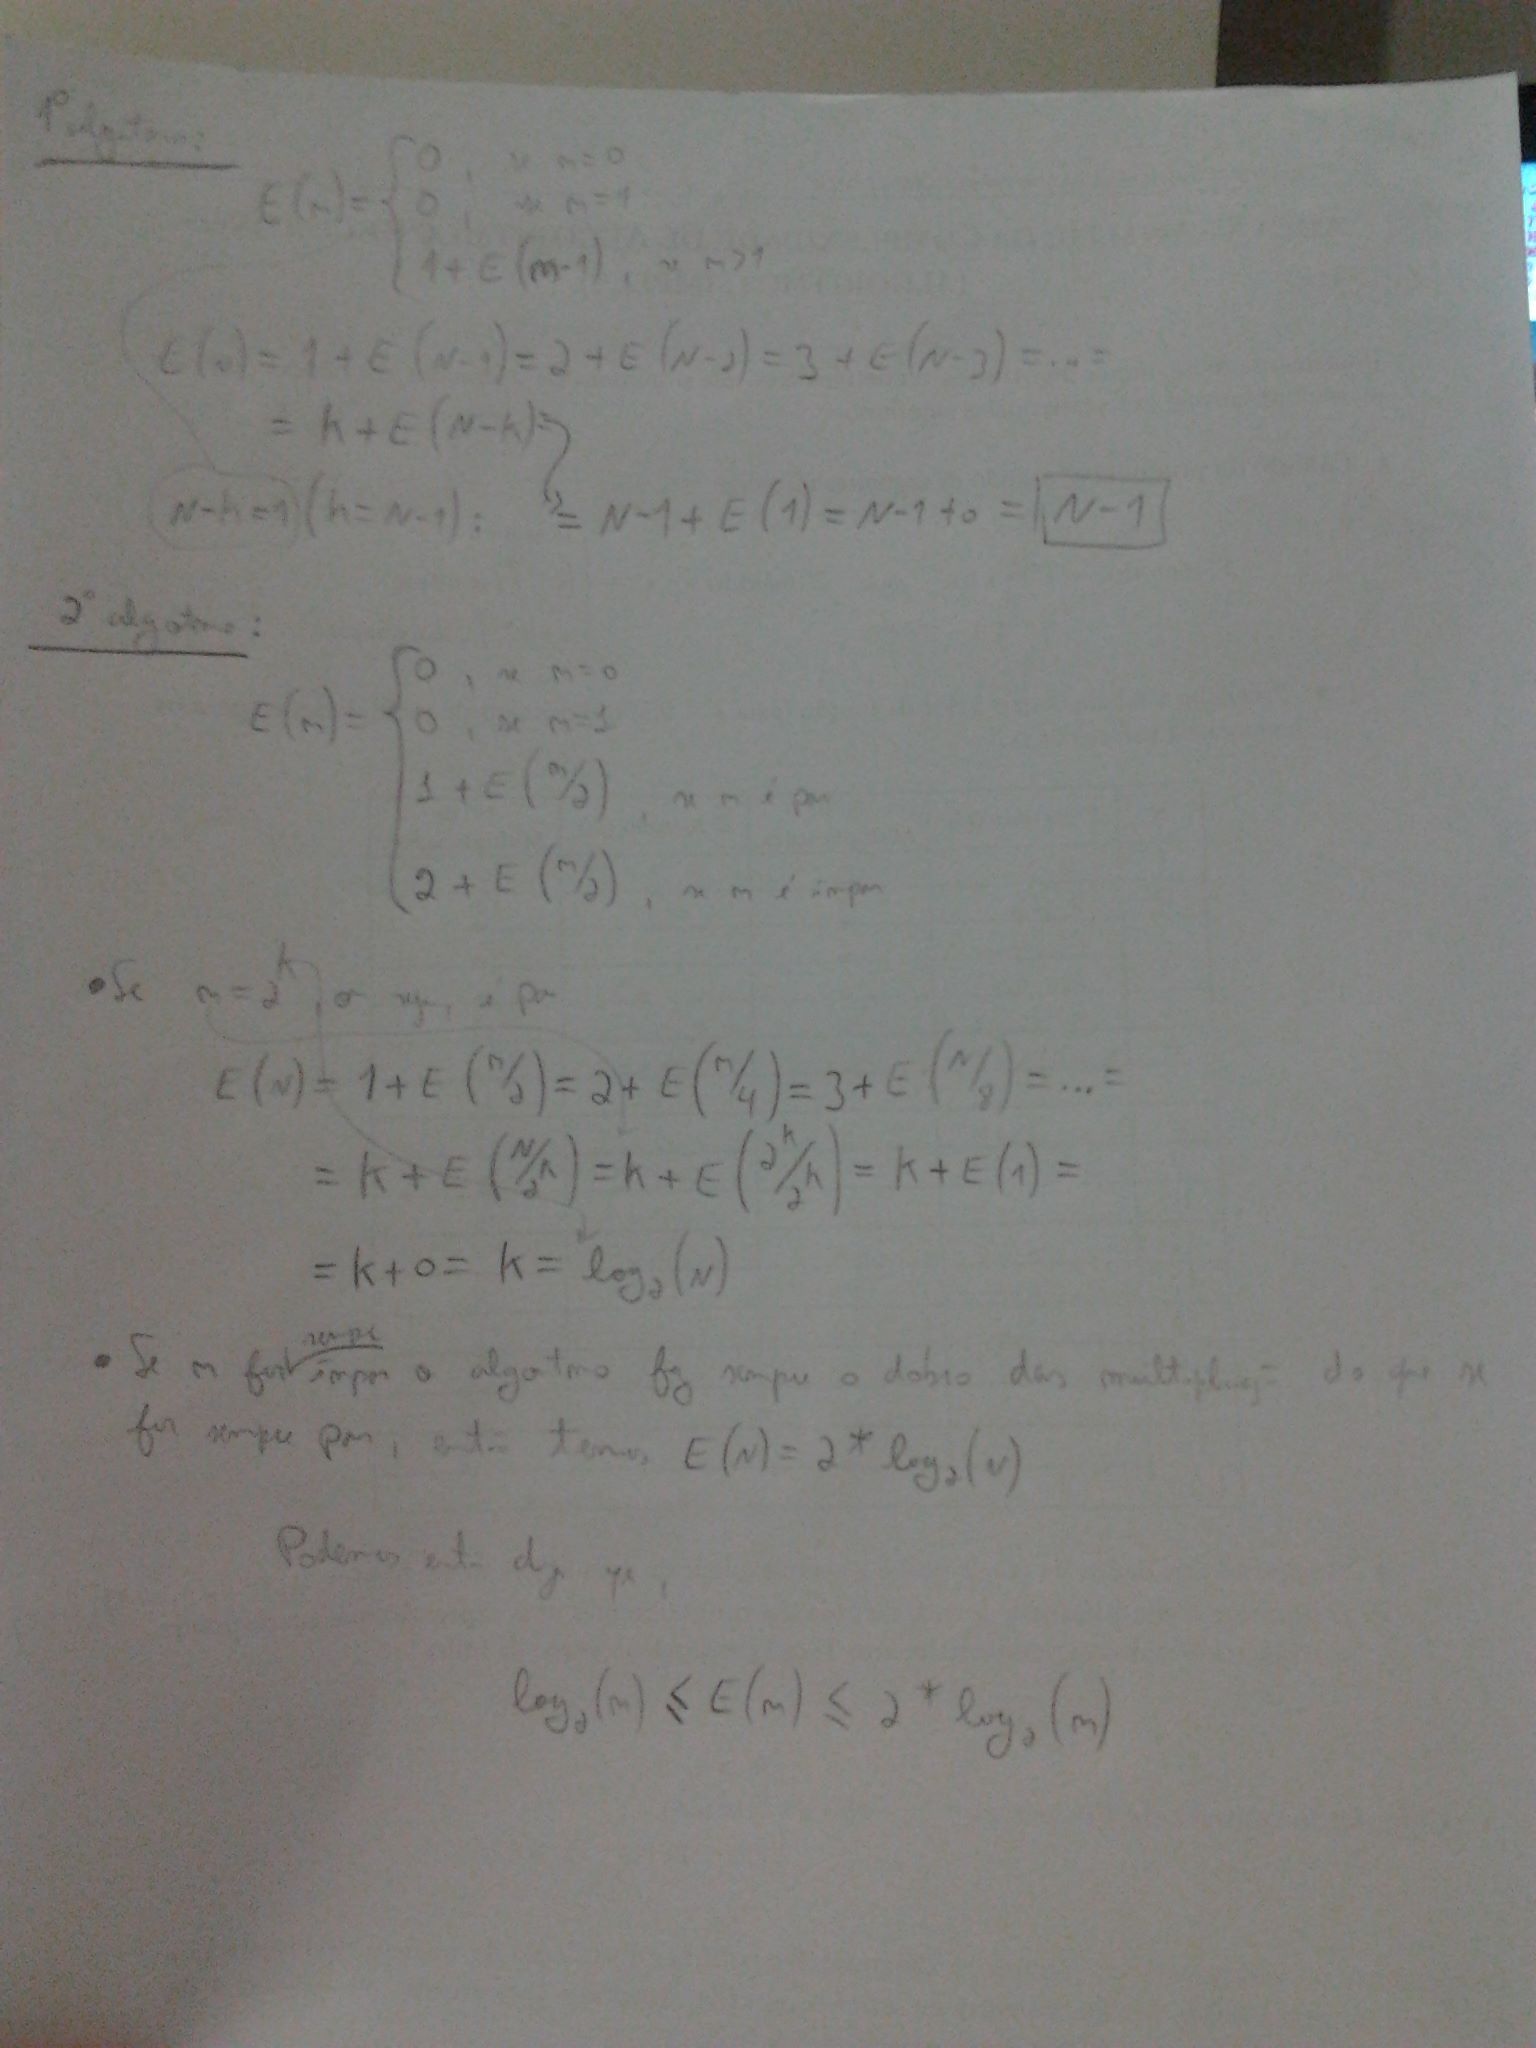 1º algoritmo:
E(n) = { 0 , se n=0
0 , se n=1
1 + E(n-1) , se n>1
E(N) = 1 + E(N-1) = 2 + E(N-2) = 3 + E(N-3) = ... =
= k + E(N-k) =
N-k=1 (k=N-1): = N-1 + E(1) = N-1+0 = N-1
2º algoritmo:
E(n) = { 0 , se n=0
0 , se n=1
1 + E(n/2) , se n é par
2 + E(n/2) , se n é ímpar
• Se n = 2^k, ou seja, é par
E(N) = 1 + E(n/2) = 2 + E(n/4) = 3 + E(N/8) = ... =
= k + E(N/2^k) = k + E(2^k/2^k) = k + E(1) =
= k+0 = k = log₂(N)
• Se n for sempre ímpar o algoritmo faz sempre o dobro das multiplicações do que se
for sempre par, então temos E(N) = 2 * log₂(N)
Podemos então dizer que,
log₂(n) ≤ E(n) ≤ 2 * log₂(n)